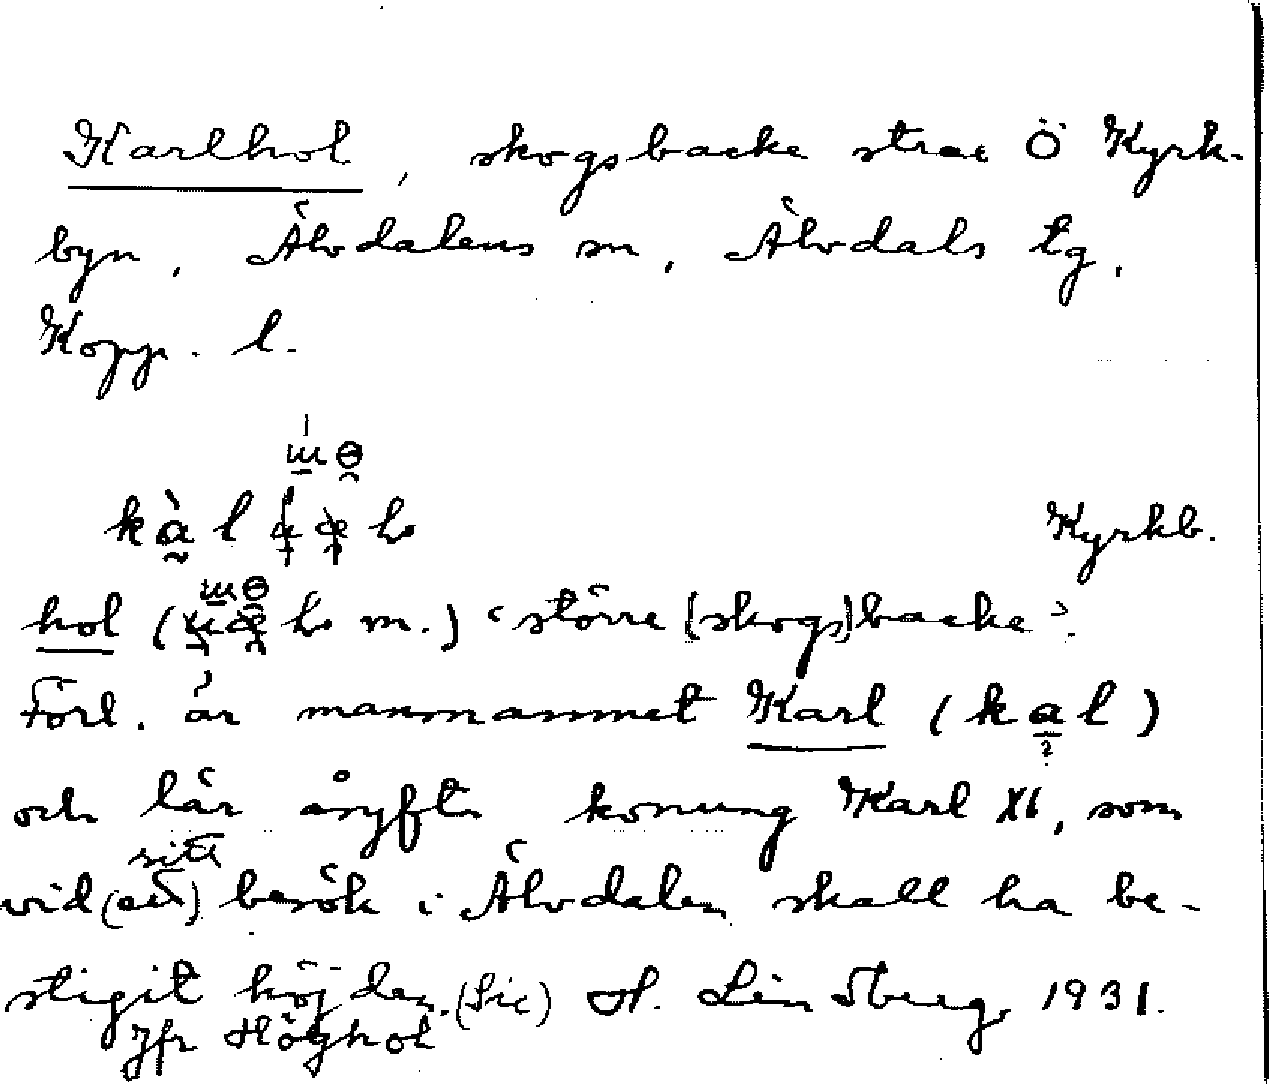 Karlhol, skogsbacke strax Ö Kyrk-
byn, Älvdalens sn, Älvdals tg,
Kopp. l.
Kyrkb.
hol ( m.) 'större (skogs)backe'.
Förl. är mansnamnet Karl (kal)
och lär åsyfta konung Karl XI, som
sitt
vid (ett) besök i Älvdalen skall ha be-
stigit höjden. (Sic) H. Linsberg, 1931.
Jfr Höghol